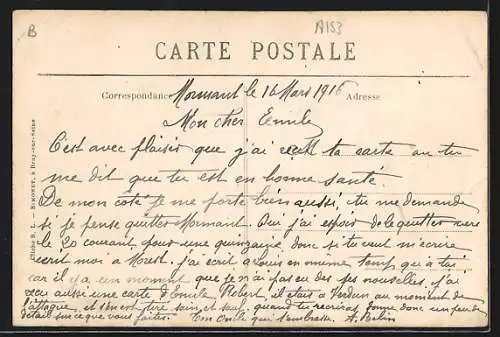 B
A153
CARTE POSTALE
Correspondance Adresse
Mormant le 16 Mars 1916
Mon cher Emile
C'est avec plaisir que j'ai ta carte où tu
me dit que tu est en bonne santé.
De mon coté je me porte bien aussi, tu me demande
si je pense quitter Mormant. Oui j'ai espoir de le quitter vers
le 20 courant, pour une quinzaine, donc si tu veut m'écrire
écrit moi à j'ai écrit à Louis en même temp qu'à toi
car il y a un moment que je n'ai pas eu des ses nouvelles, j'ai
reçu aussi une carte d'Emile Robert, il etais à Verdun au moment de
l'attaque, et s'en est tiré sain et sauf, quand tu recriras donne donc un peu de
détails sur ce que vous faites. Ton Oncle qui t'embrasse. A.
Cliché S. L. — SIMONET, à Bray-sur-Seine